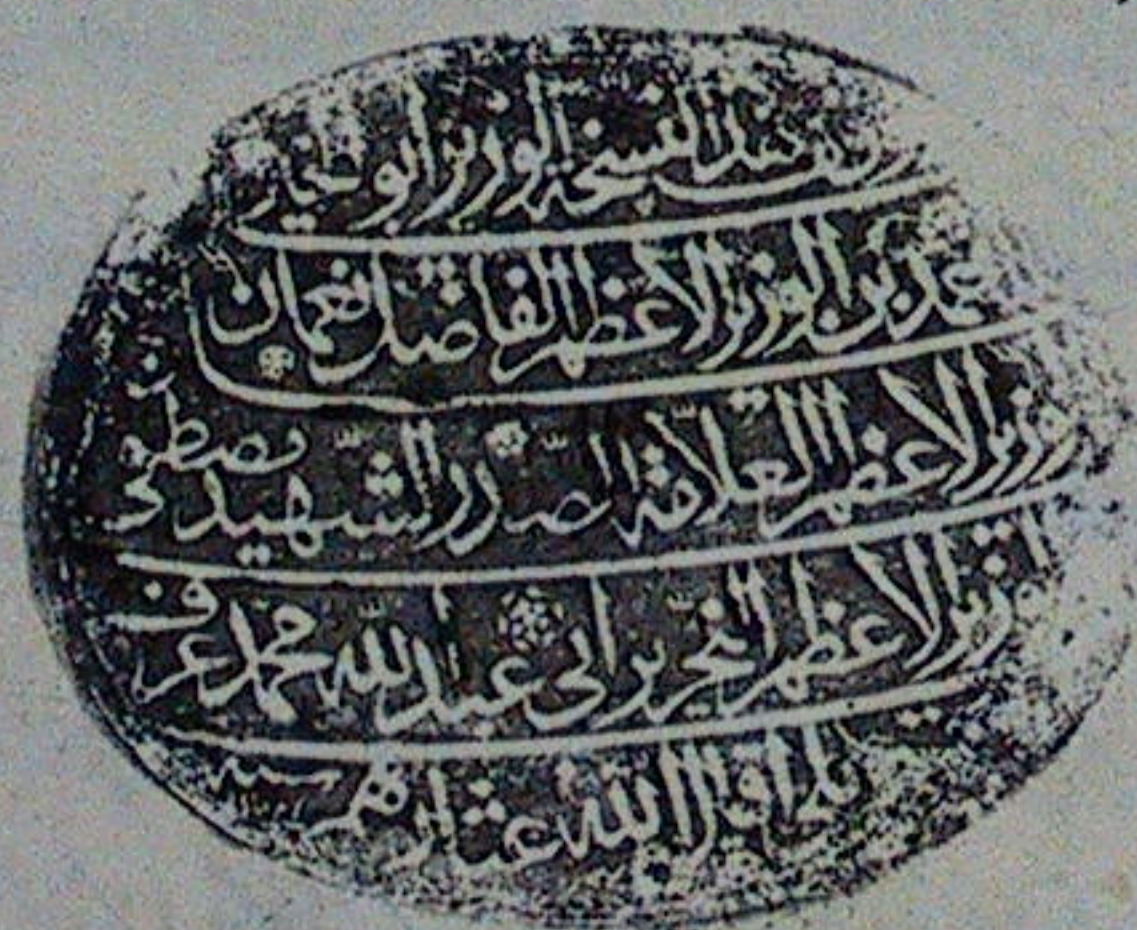 وقف هذه النسخة الوزير ابو الخير
احمد بن الوزير الاعظم الفاضل نعمان
بن الوزير الاعظم العلامة الصدر الشهيد مصطفى
بن الوزير الاعظم النحرير ابى عبد الله محمد عرف
اقال الله عثارهم سنة